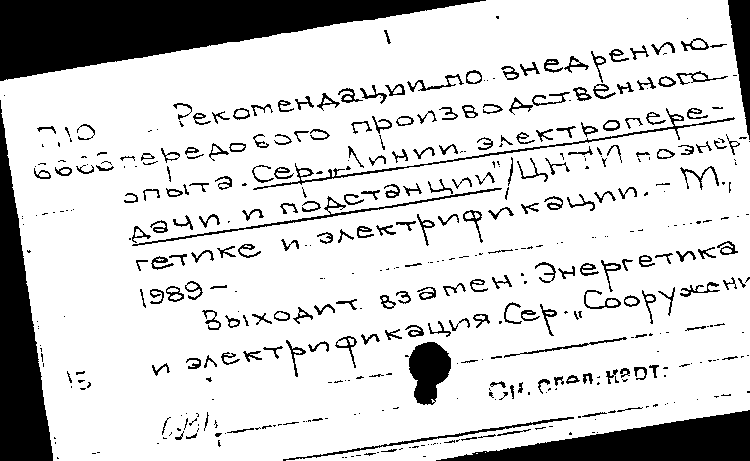 1
П10 Рекомендации по внедрению
6666 передового производственного
опыта. Сер. „Линии электропере-
дачи и подстанции"/ЦНТИ по энер-
гетике и электрификации. – М.,
1989 –
Выходит взамен: Энергетика
и электрификация. Сер. „Сооружени
15
См. след. карт.